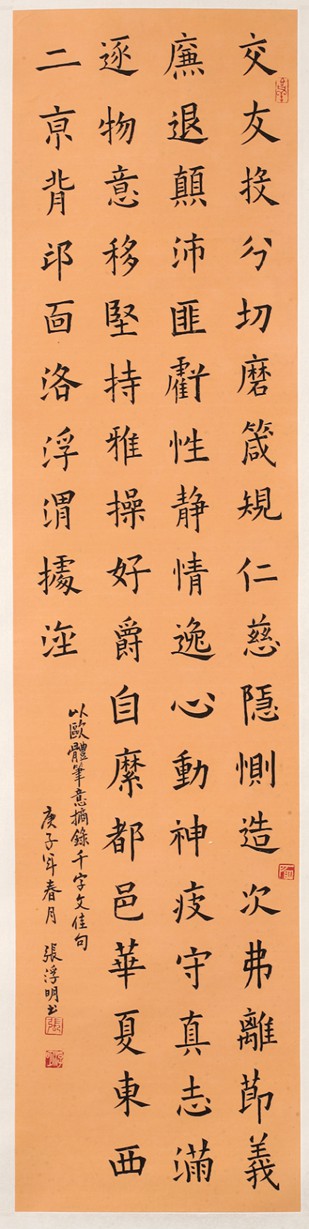 交友投分切磨箴規仁慈隱惻造次弗離節義
廉退顛沛匪虧性靜情逸心動神疲守真志滿
逐物意移堅持雅操好爵自縻都邑華夏東西
二京背邙面洛浮渭據涇
以歐體筆意摘錄千字文佳句
庚子年春月 張浮明書